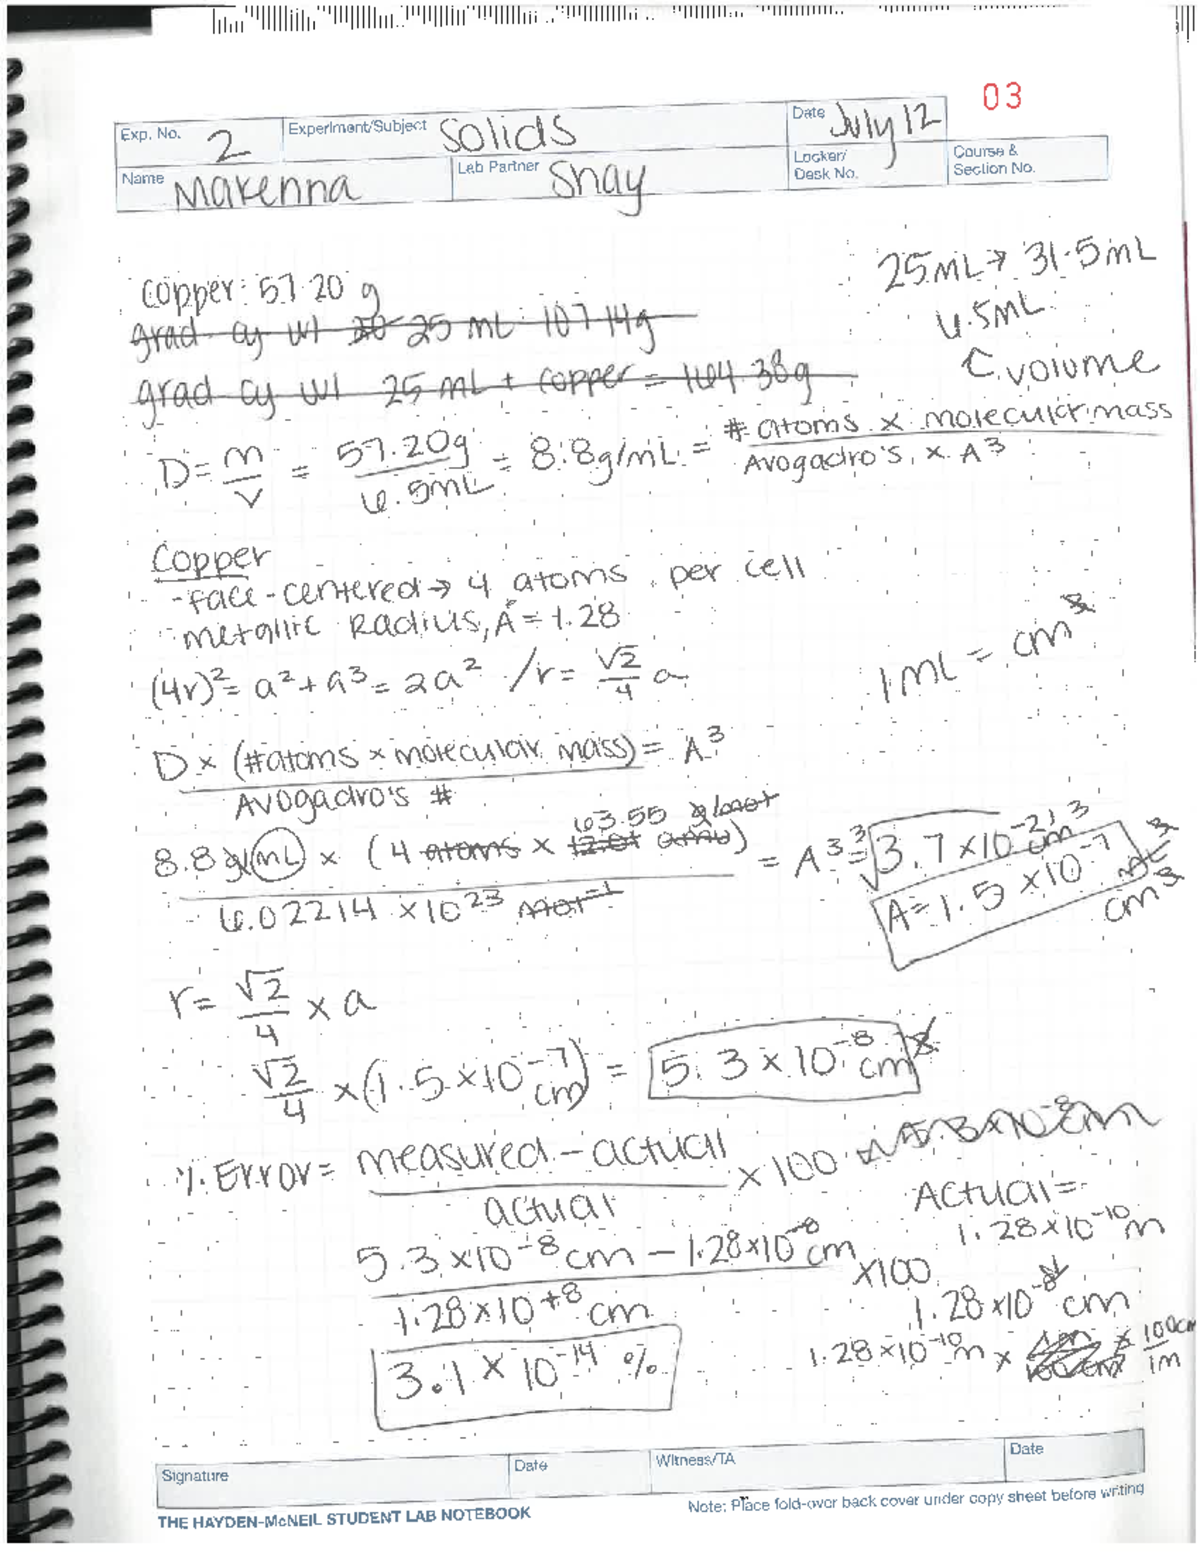 03
Exp. No. 2 Experiment/Subject Solids Date July 12
Name Makenna Lab Partner Shay Locker/Desk No. Course & Section No.
Copper: 57.20 g
25 mL → 31.5 mL
grad cy wt 20 25 mL 107.14g
6.5 mL
grad cy wt 25 mL + copper = 164.38g
volume
D = m/v = 57.20g/6.5mL = 8.8g/mL = # atoms x molecular mass/Avogadro's x A³
Copper
- face-centered → 4 atoms per cell
- metallic Radius, Å = 1.28
1 mL = cm³
(4r)² = a² + a³ = 2a² / r = √2/4 a
D x (#atoms x molecular mass)/Avogadro's # = A³
8.8 g/mL x (4 atoms x 63.55 g/mol)/6.02214 x 10²³ mol⁻¹ = A³ = ³√3.7 x 10⁻²¹ cm³
A = 1.5 x 10⁻⁷
cm³
r = √2/4 x a
√2/4 x (1.5 x 10⁻⁷ cm) = 5.3 x 10⁻⁸ cm
% Error = measured - actual/actual x 100
Actual =
1.28 x 10⁻¹⁰ m
5.3 x 10⁻⁸ cm - 1.28 x 10⁻⁸ cm/1.28 x 10⁺⁸ cm x100
1.28 x 10⁻⁸ cm
1.28 x 10⁻¹⁰ m x 100cm/1m
3.1 x 10⁻¹⁴ %
Signature Date Witness/TA Date
THE HAYDEN-McNEIL STUDENT LAB NOTEBOOK Note: Place fold-over back cover under copy sheet before writing